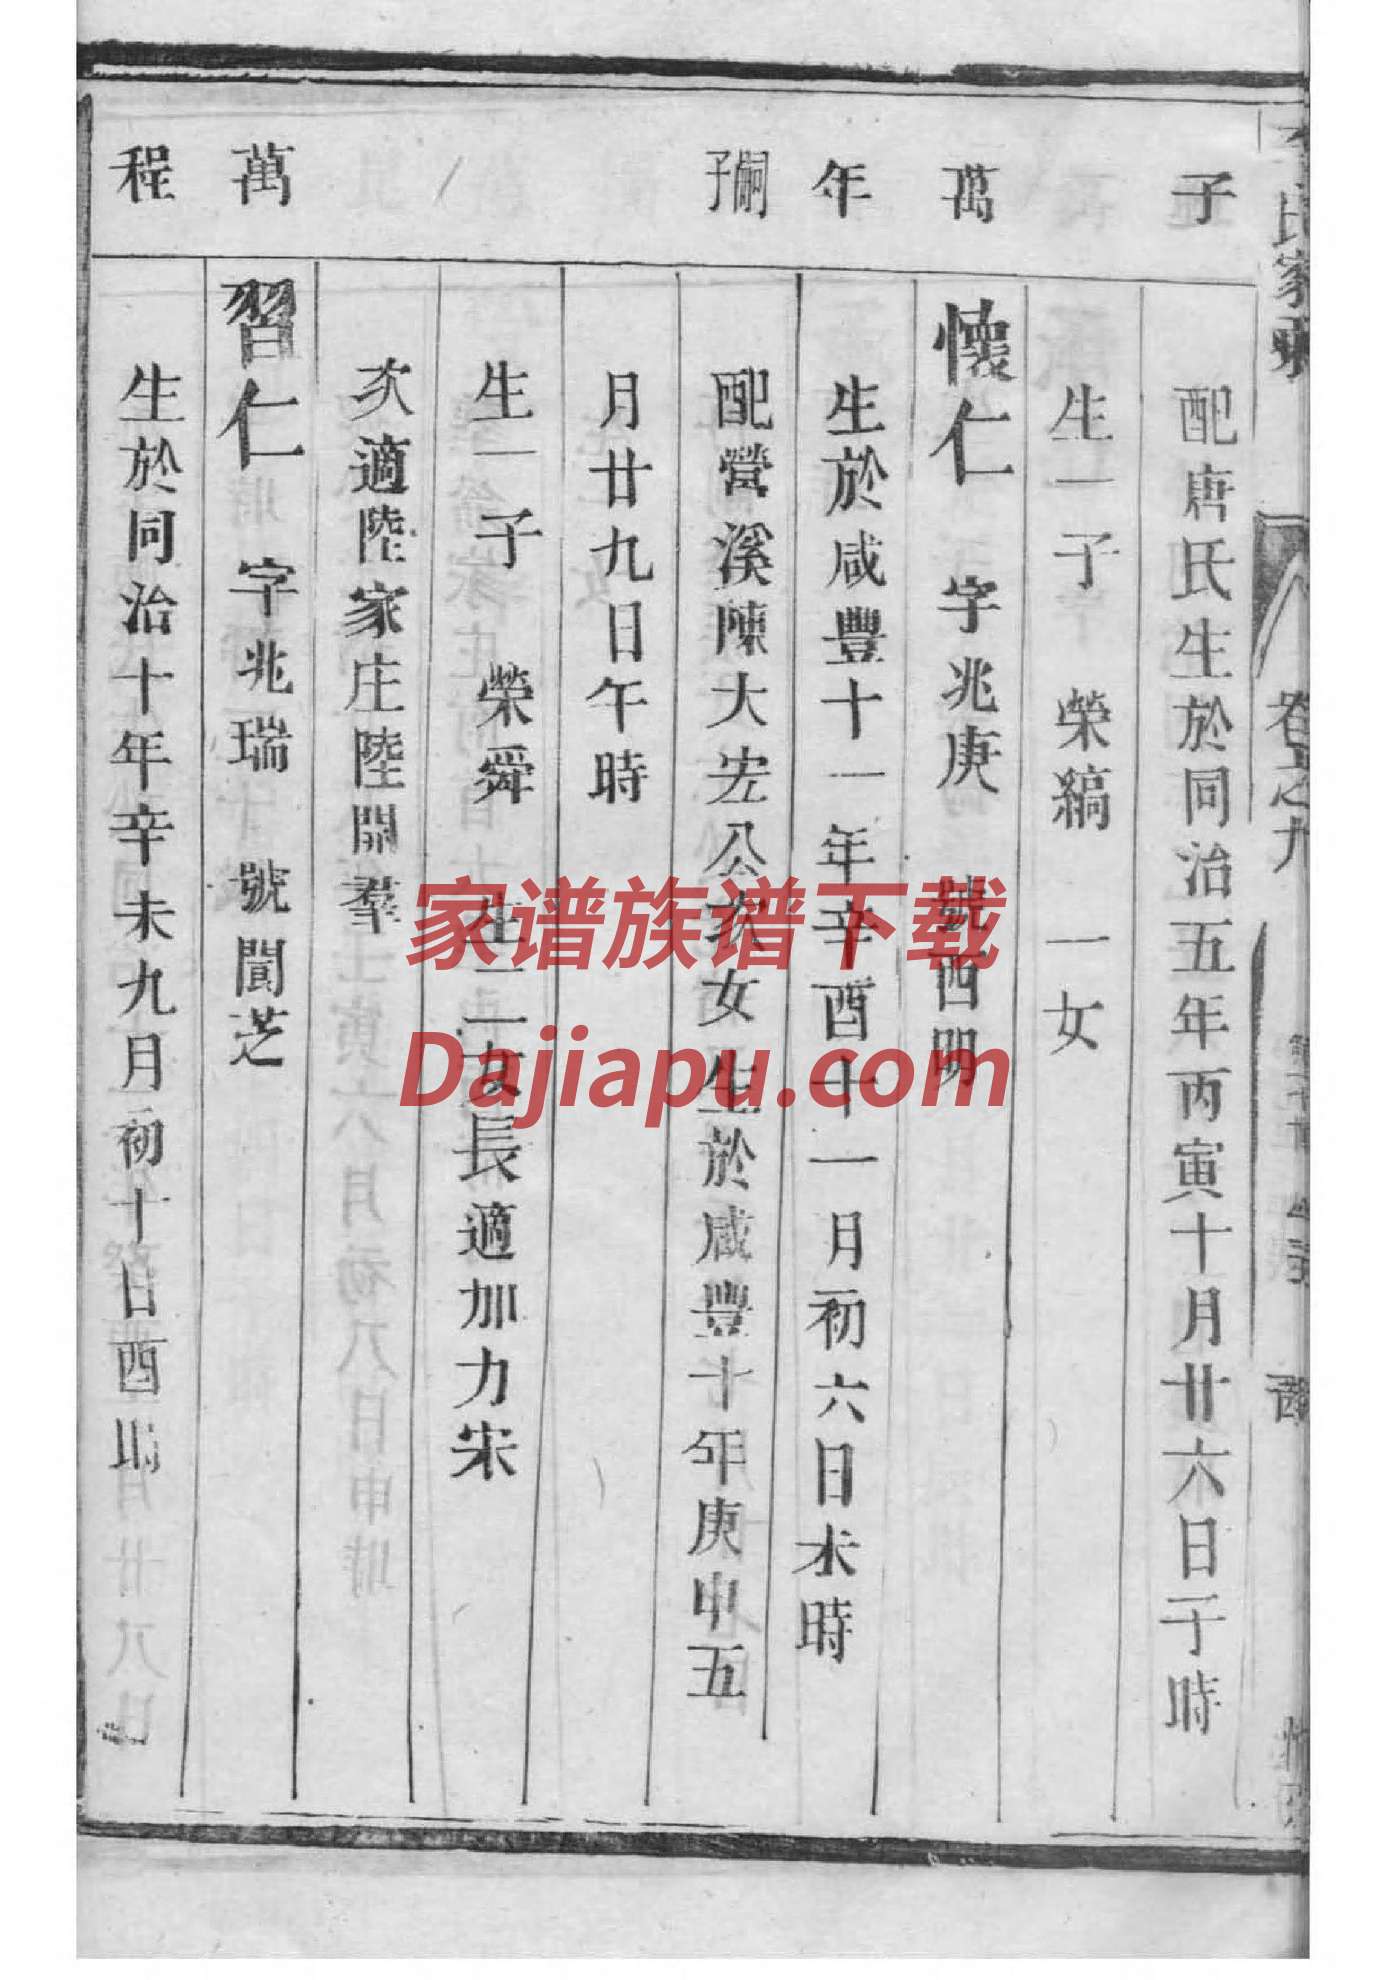 氏家乘
卷之九
子
配唐氏生於同治五年丙寅十月廿六日子時
生一子 榮縞 一女
萬
懷仁 字兆庚 號酉明
年
生於咸豐十一年辛酉十一月初六日未時
嗣子
配營溪陳大宏公次女生於咸豐十年庚申五
月廿九日午時
生一子 榮舜 生二女長適加力宋
次適陸家庄陸開羣
萬
習仁 字兆瑞 號聞芝
程
生於同治十年辛未九月初十日酉時
家谱族谱下载
Dajiapu.com